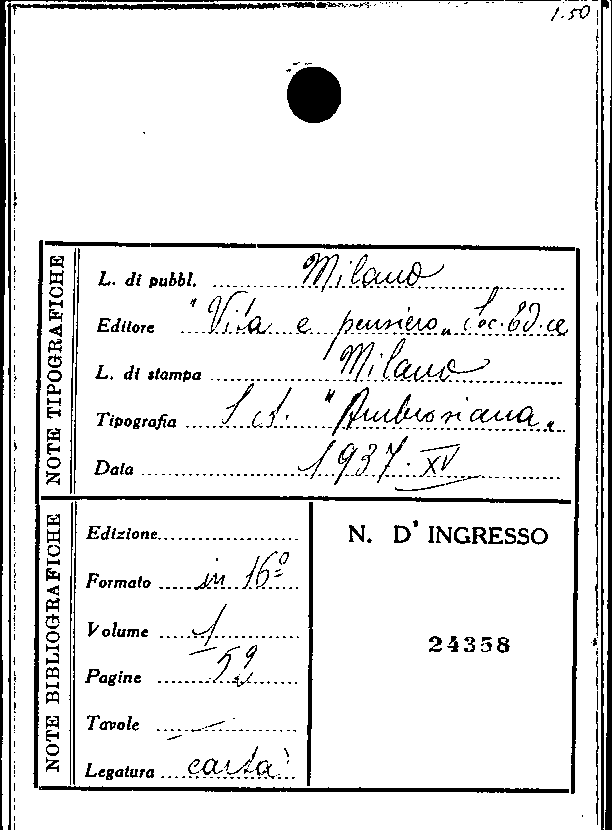 1.50
NOTE TIPOGRAFICHE
L. di pubbl. Milano
Editore "Vita e pensiero„ Soc. Ed. ce
L. di stampa Milano
Tipografia "Ambrosiana„
Data 1937. XV
NOTE BIBLIOGRAFICHE
Edizione
Formato in 16º
Volume 1
Pagine 59
Tavole —
Legatura carta
N. D' INGRESSO
24358